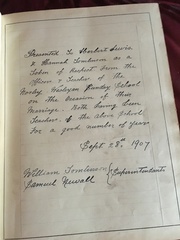 Presented To Herbert Lewis
& Hannah Tomlinson as a
Token of Respect from the
Officers & Teachers of the
Worsley Wesleyan Sunday School
on the Occasion of their
Marriage. Both having been
Teachers of the above School
for a good number of years
Sept 28th 1907
William Tomlinson
Samuel Newall
Superintendents